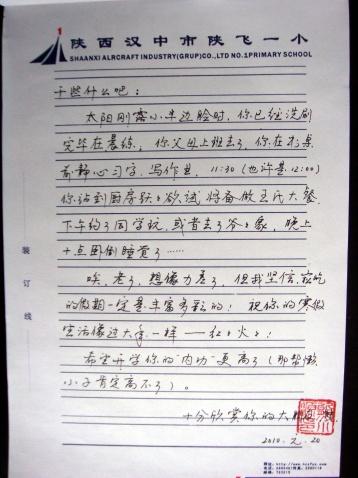 陕西汉中市陕飞一小
SHAANXI ALRCRAFT INDUSTRY(GRUP)CO.,LTD NO.1PRIMARY SCHOOL
干些什么吧：
太阳刚露小半边脸时，你已经洗刷
完毕在晨练，你父母上班去了，你在书桌
前静心习字，写作业，11:30（也许是12:00）
你站到厨房跃跃欲试准备做王氏大餐，
下午约了同学玩，或者去了爷爷家，晚上
十点卧倒睡觉了……
唉，老了，想像力差了，但我坚信，
的假期一定是丰富多彩的！祝你的寒假
生活像过大年一样——红红火火！
希望开学你的“内功”更高了（那帮
小子肯定高不了）。
十分欣赏你的大
2010.2.20
装订线